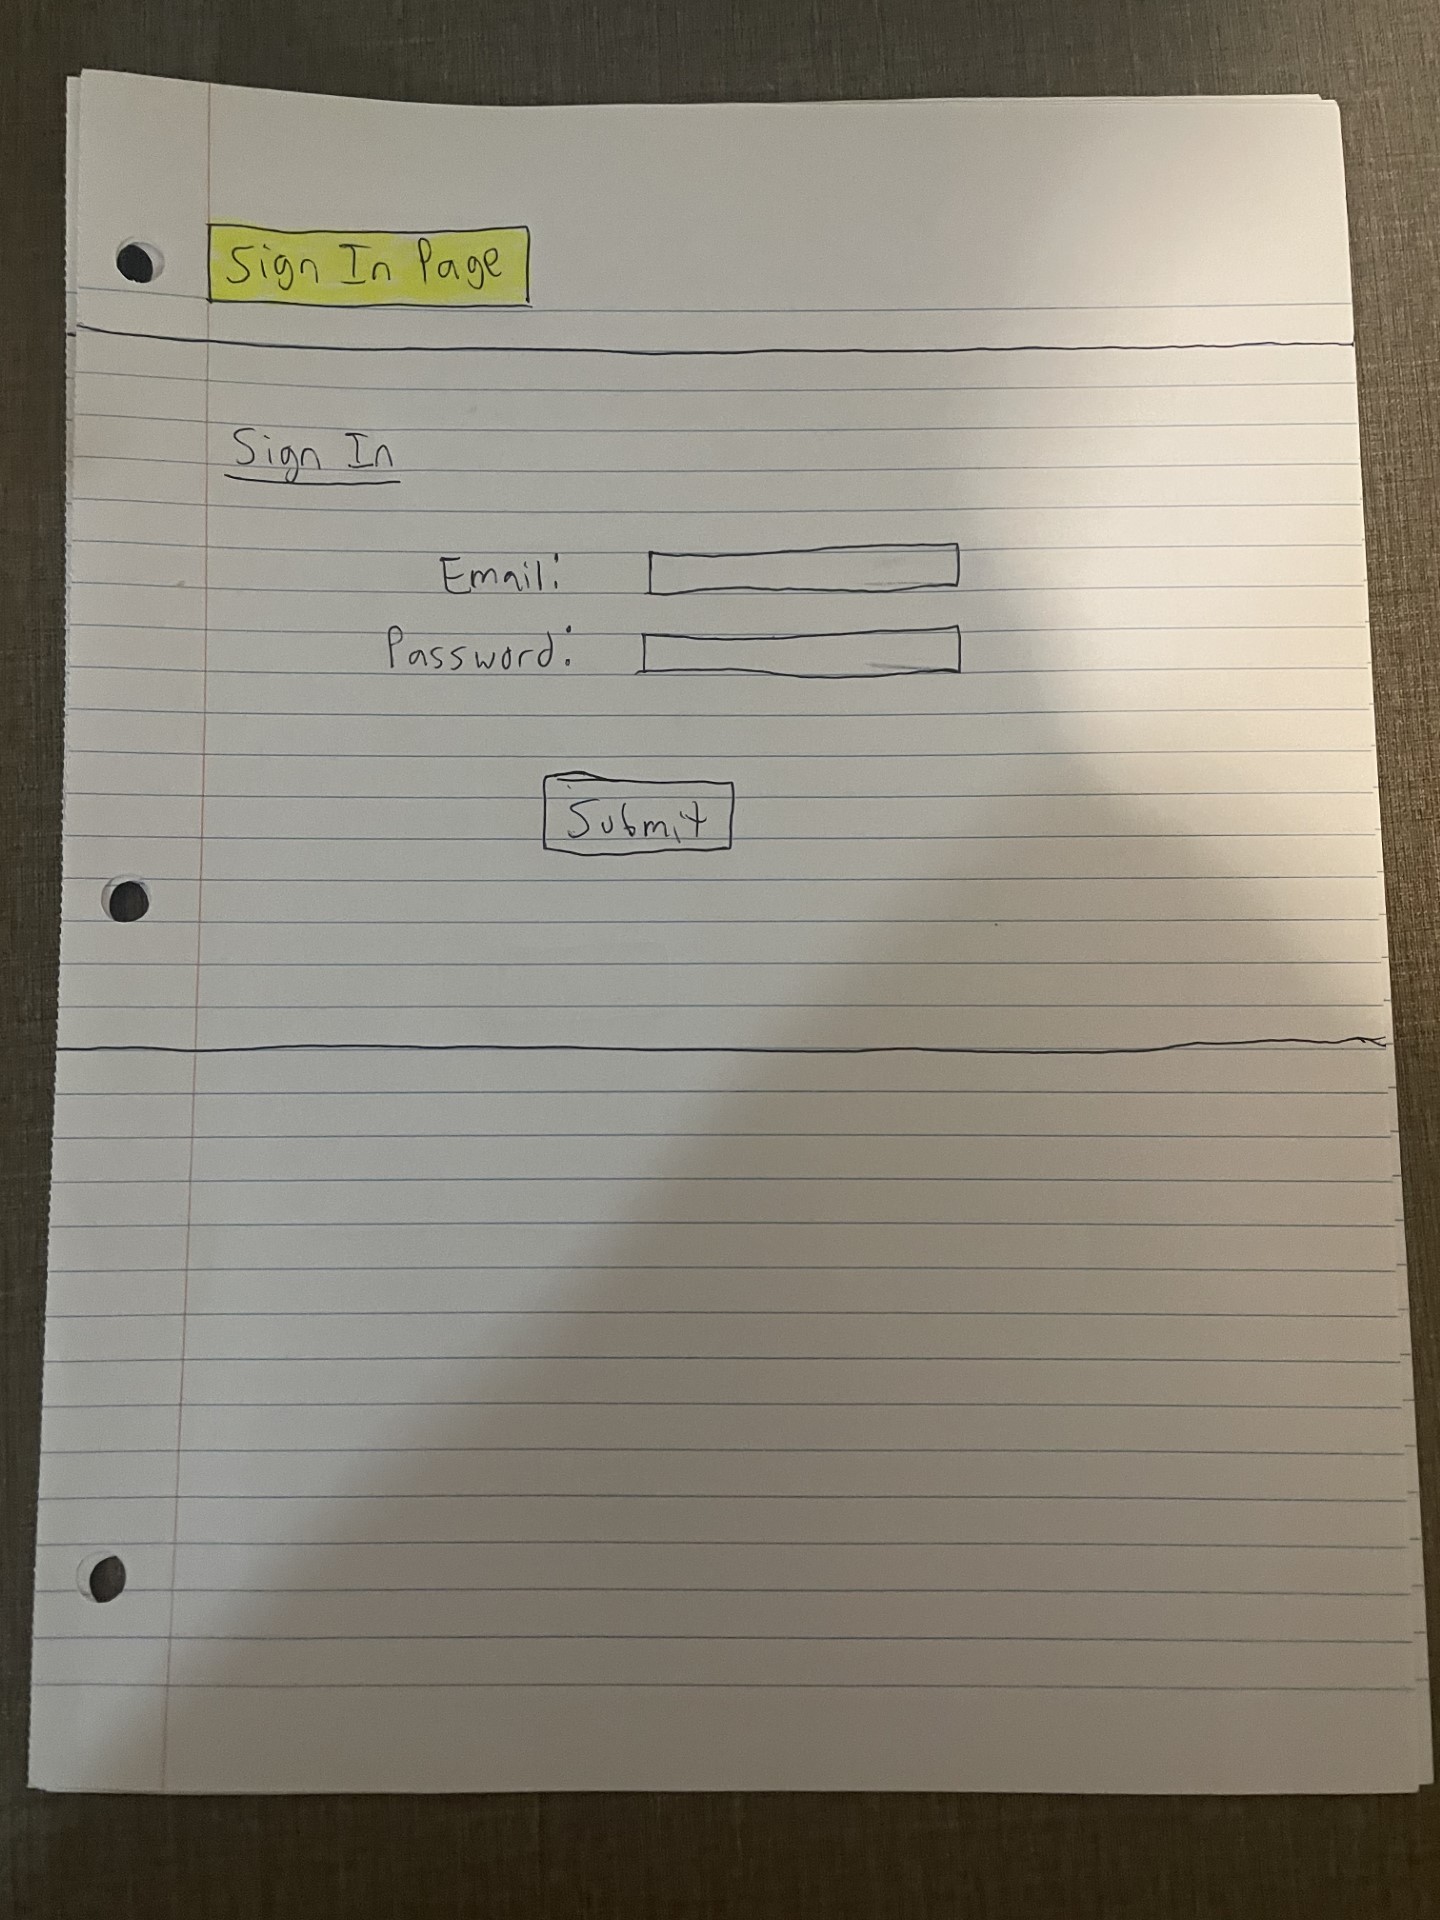 Sign In Page
Sign In
Email:
Password:
Submit